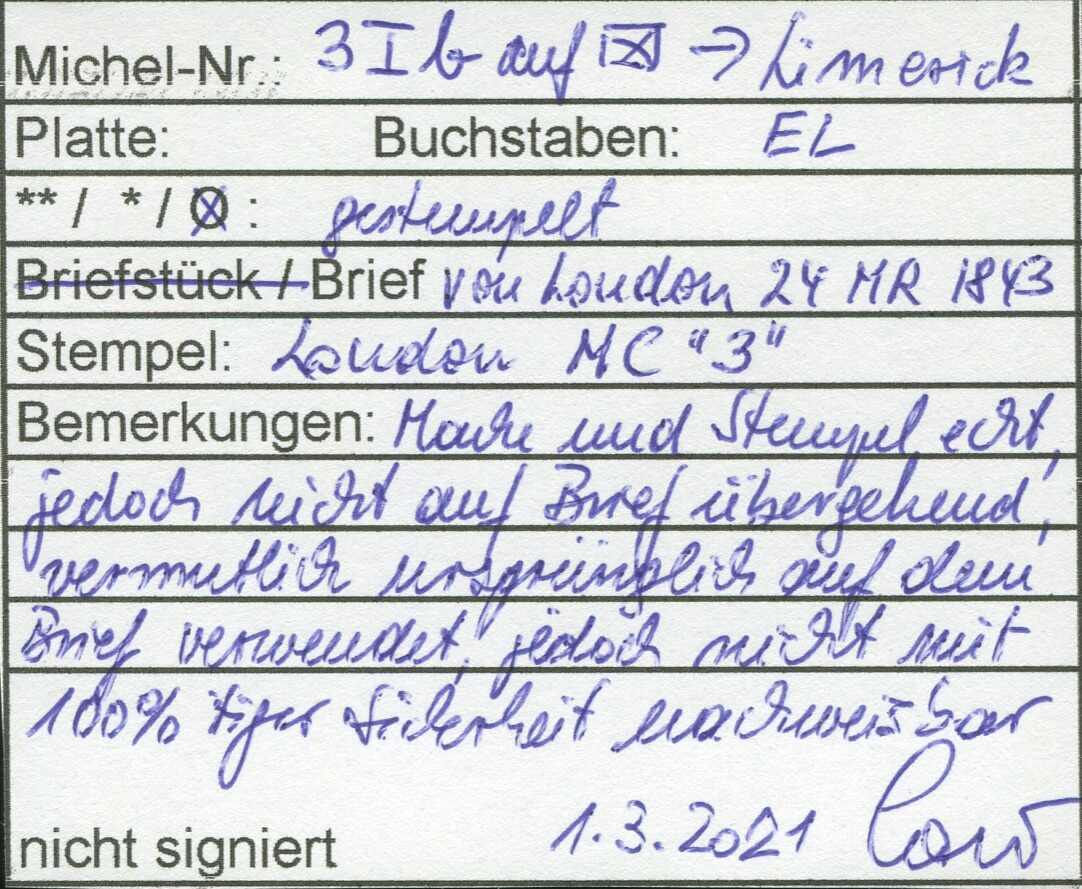 Michel-Nr.: 3 I b auf ⊠ → Limerick
Platte: Buchstaben: EL
** / * / O : gestempelt
Briefstück / Brief von London 24 MR 1843
Stempel: London MC "3"
Bemerkungen: Marke und Stempel echt,
jedoch nicht auf Brief übergehend,
vermutlich ursprünglich auf dem
Brief verwendet, jedoch nicht mit
100%tiger Sicherheit nachweisbar
nicht signiert 1.3.2021